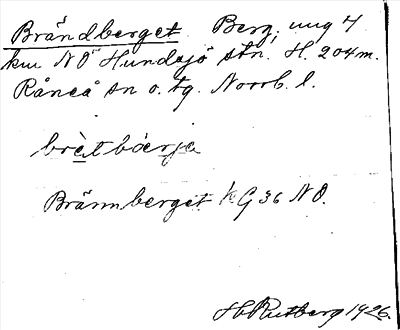 Brändberget Berg, ung 4
km NO Hundsjö stn. H. 204 m.
Råneå sn o. tg. Norrb. l.
brètbærje
Brännberget k G 36 NO.
Hb Rutberg 1926.